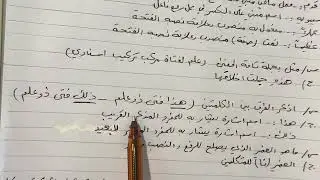 قوم :- فعل ماض مبني على
به :- اسم مبني على الكسر في محل رفع فاعل
:- مفعول به منصوب وعلامة نصبه الفتحة
:- نعت (صفة) منصوب وعلامة نصبه الفتحة
س/ مثل بجملة تامة المعنى (علم لفتاة مركب تركيب اسنادي)
ج:- هذه جلت اخلاقها
س/ اذكر الفرق بين الكلمتين (هذا فتى ذو علم - ذلك فتى ذو علم)
ج:- هذا :- اسم اشارة يشار به للمفرد المذكر القريب
ذلك :- اسم اشارة يشار به للمفرد المذكر البعيد
س/ ما هو الضمير الذي يصلح للرفع والنصب
ج:- الضمير (نا) للمتكلمين